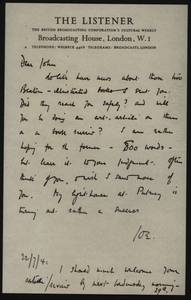 THE LISTENER
THE BRITISH BROADCASTING CORPORATION'S CULTURAL WEEKLY
Broadcasting House, London, W.1
TELEPHONE: WELBECK 4468 TELEGRAMS: BROADCASTS, LONDON
Dear John
have news about those two
illustrated books I sent you.
Did they reach you safely? and will
you be doing an art-article on them
or a book review? I am rather
hoping for the former - 800 words -
but leave it to your judgment.
of you, I wish I saw more of
you. My lighthouse at Putney is
turning out rather a success
Joe
22/7/4
I should much welcome your
article/review by next Wednesday morning
29th